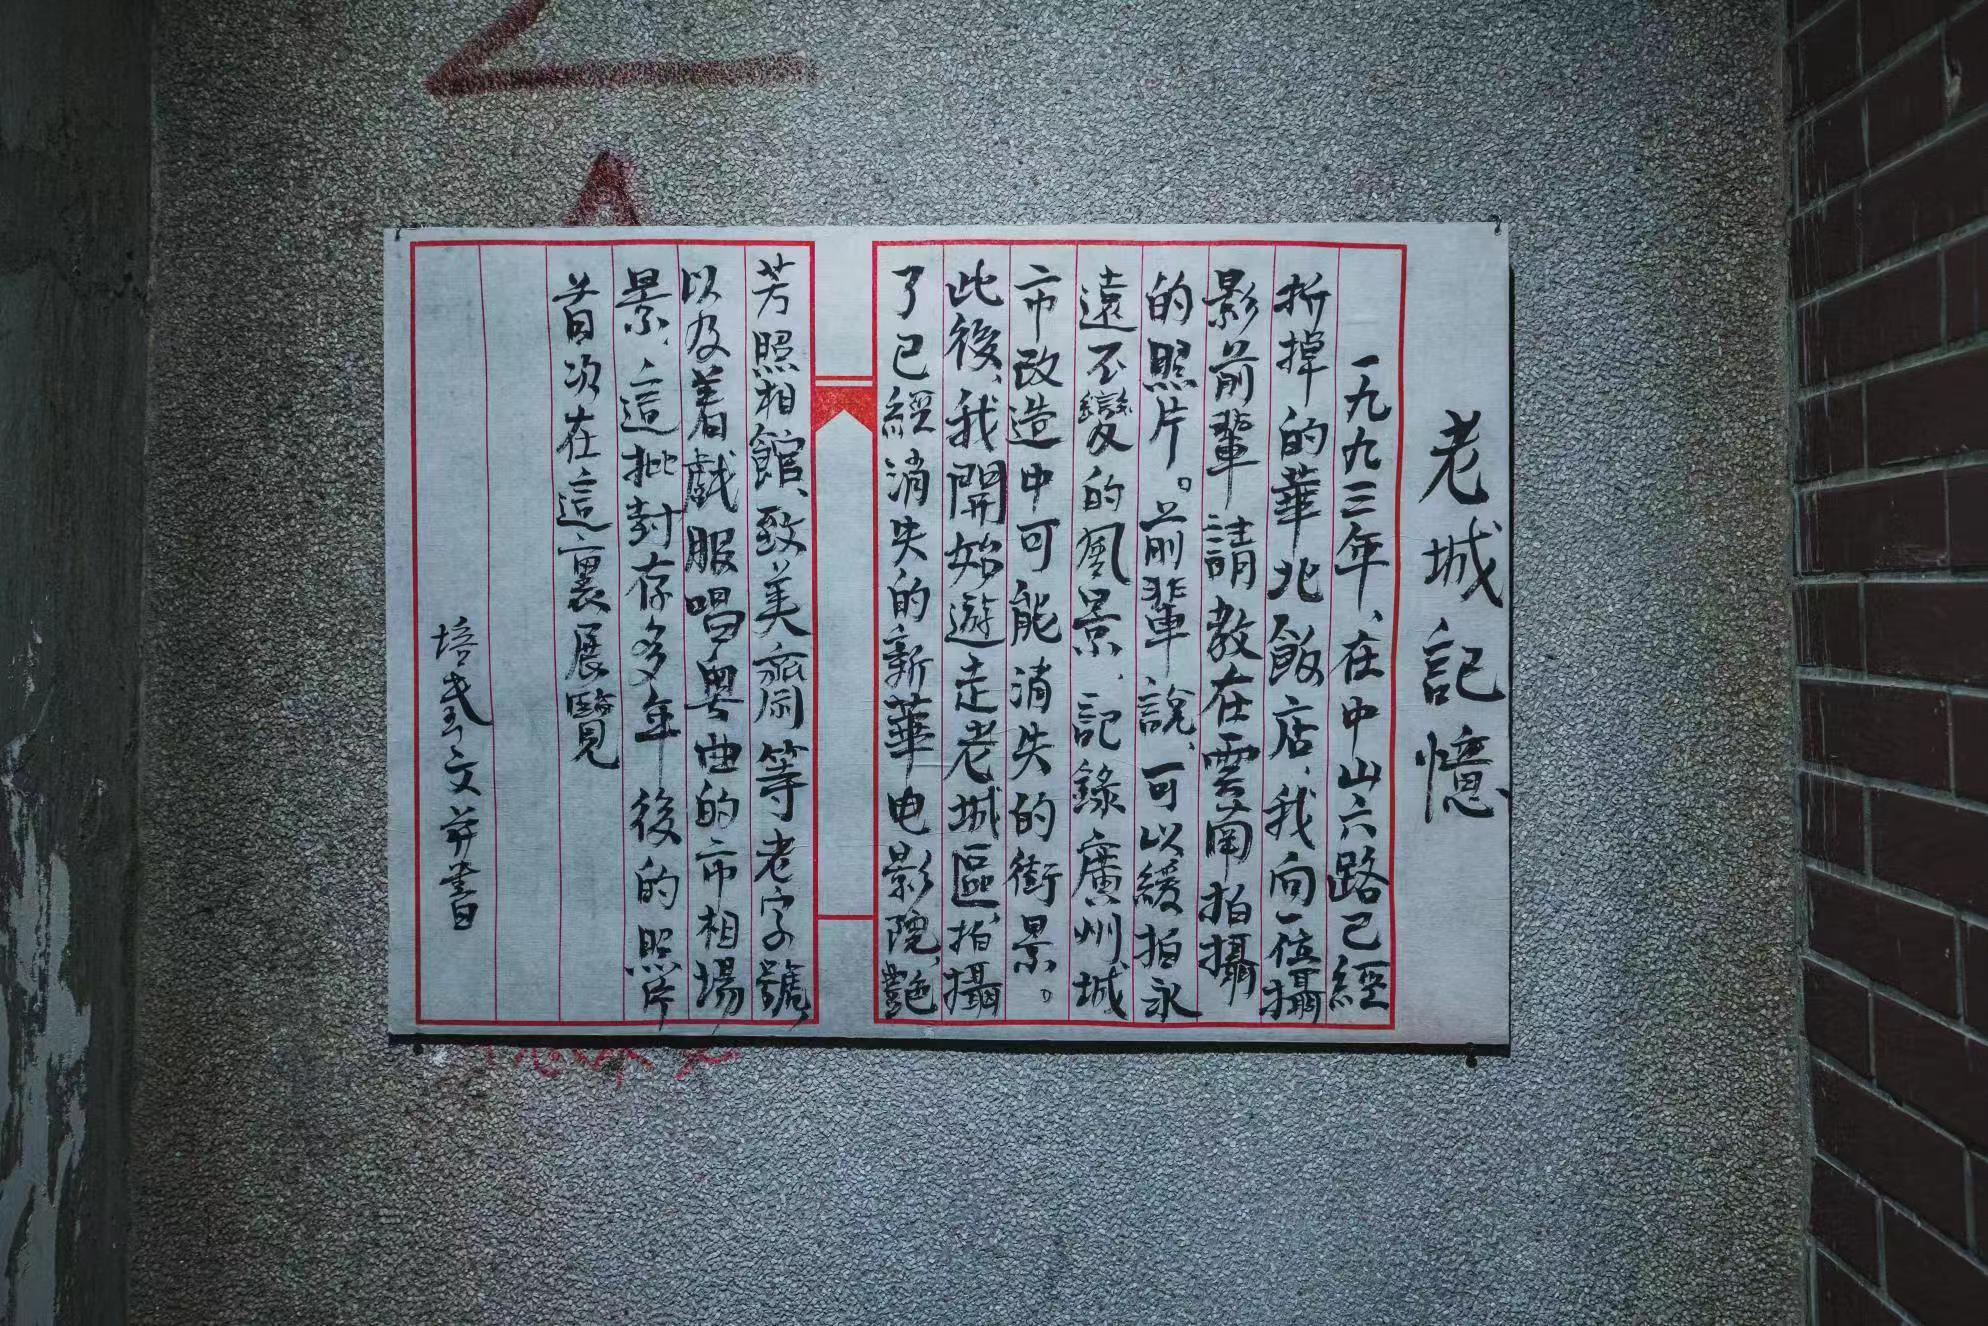 老城記憶
一九九三年、在中山六路已經
折掉的華北飯店、我向一位攝
影前輩請教在雲南拍攝
的照片。前輩說、可以緩拍永
遠不變的風景、記錄廣州城
市改造中可能消失的街景。
此後、我開始遊走老城區、拍攝
了已經消失的新華电影院、艷
芳照相館、致美齋等老字號
以及着戲服唱粵曲的市相場
景、這批封存多年後的照片
首次在這裏展覽
培文并書